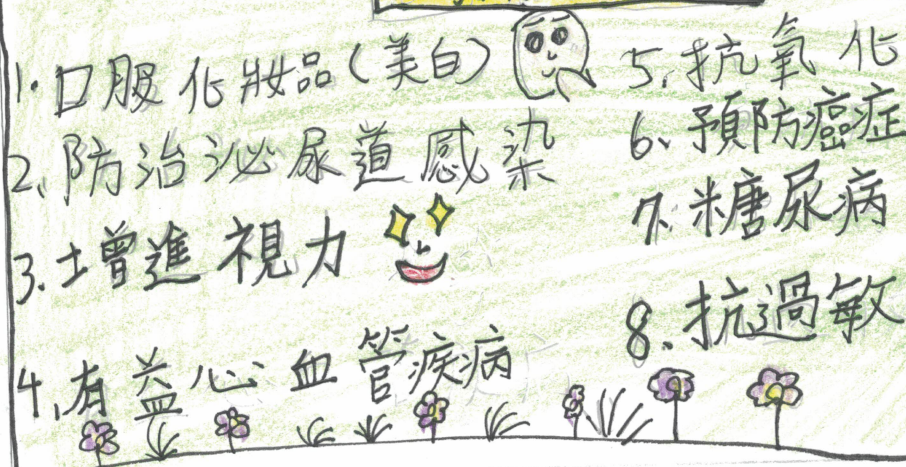 1.口服化妝品(美白)
2、防治泌尿道感染
3.增進視力
4.有益心血管疾病
5.抗氧化
6、預防癌症
7.糖尿病
8.抗過敏